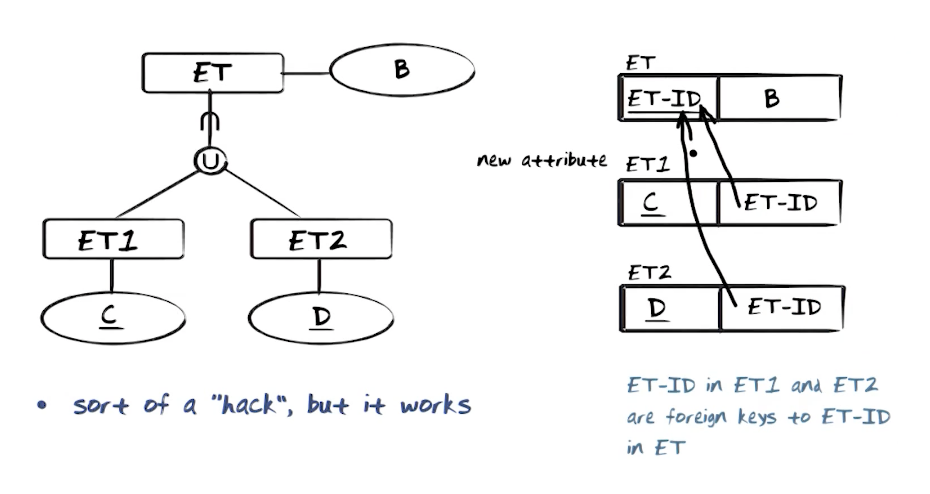 ET
B
U
ET1
ET2
C
D
• sort of a "hack", but it works
ET
ET-ID
B
new attribute
ET1
C
ET-ID
ET2
D
ET-ID
ET-ID in ET1 and ET2
are foreign keys to ET-ID
in ET